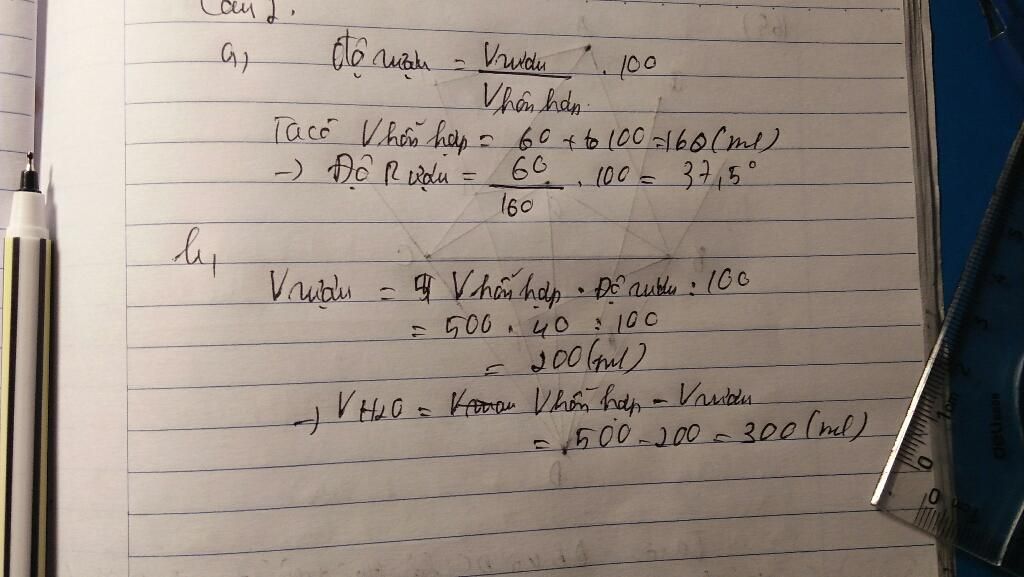 Câu 2.
a, Độ rượu = Vrượu / Vhỗn hợp . 100
Ta có Vhỗn hợp = 60 + 100 = 160 (ml)
→ Độ Rượu = 60 / 160 . 100 = 37,5°
b,
Vrượu = Vhỗn hợp . Độ rượu : 100
= 500 . 40 : 100
= 200 (ml)
→ V H2O = Vhỗn hợp - Vrượu
= 500 - 200 = 300 (ml)